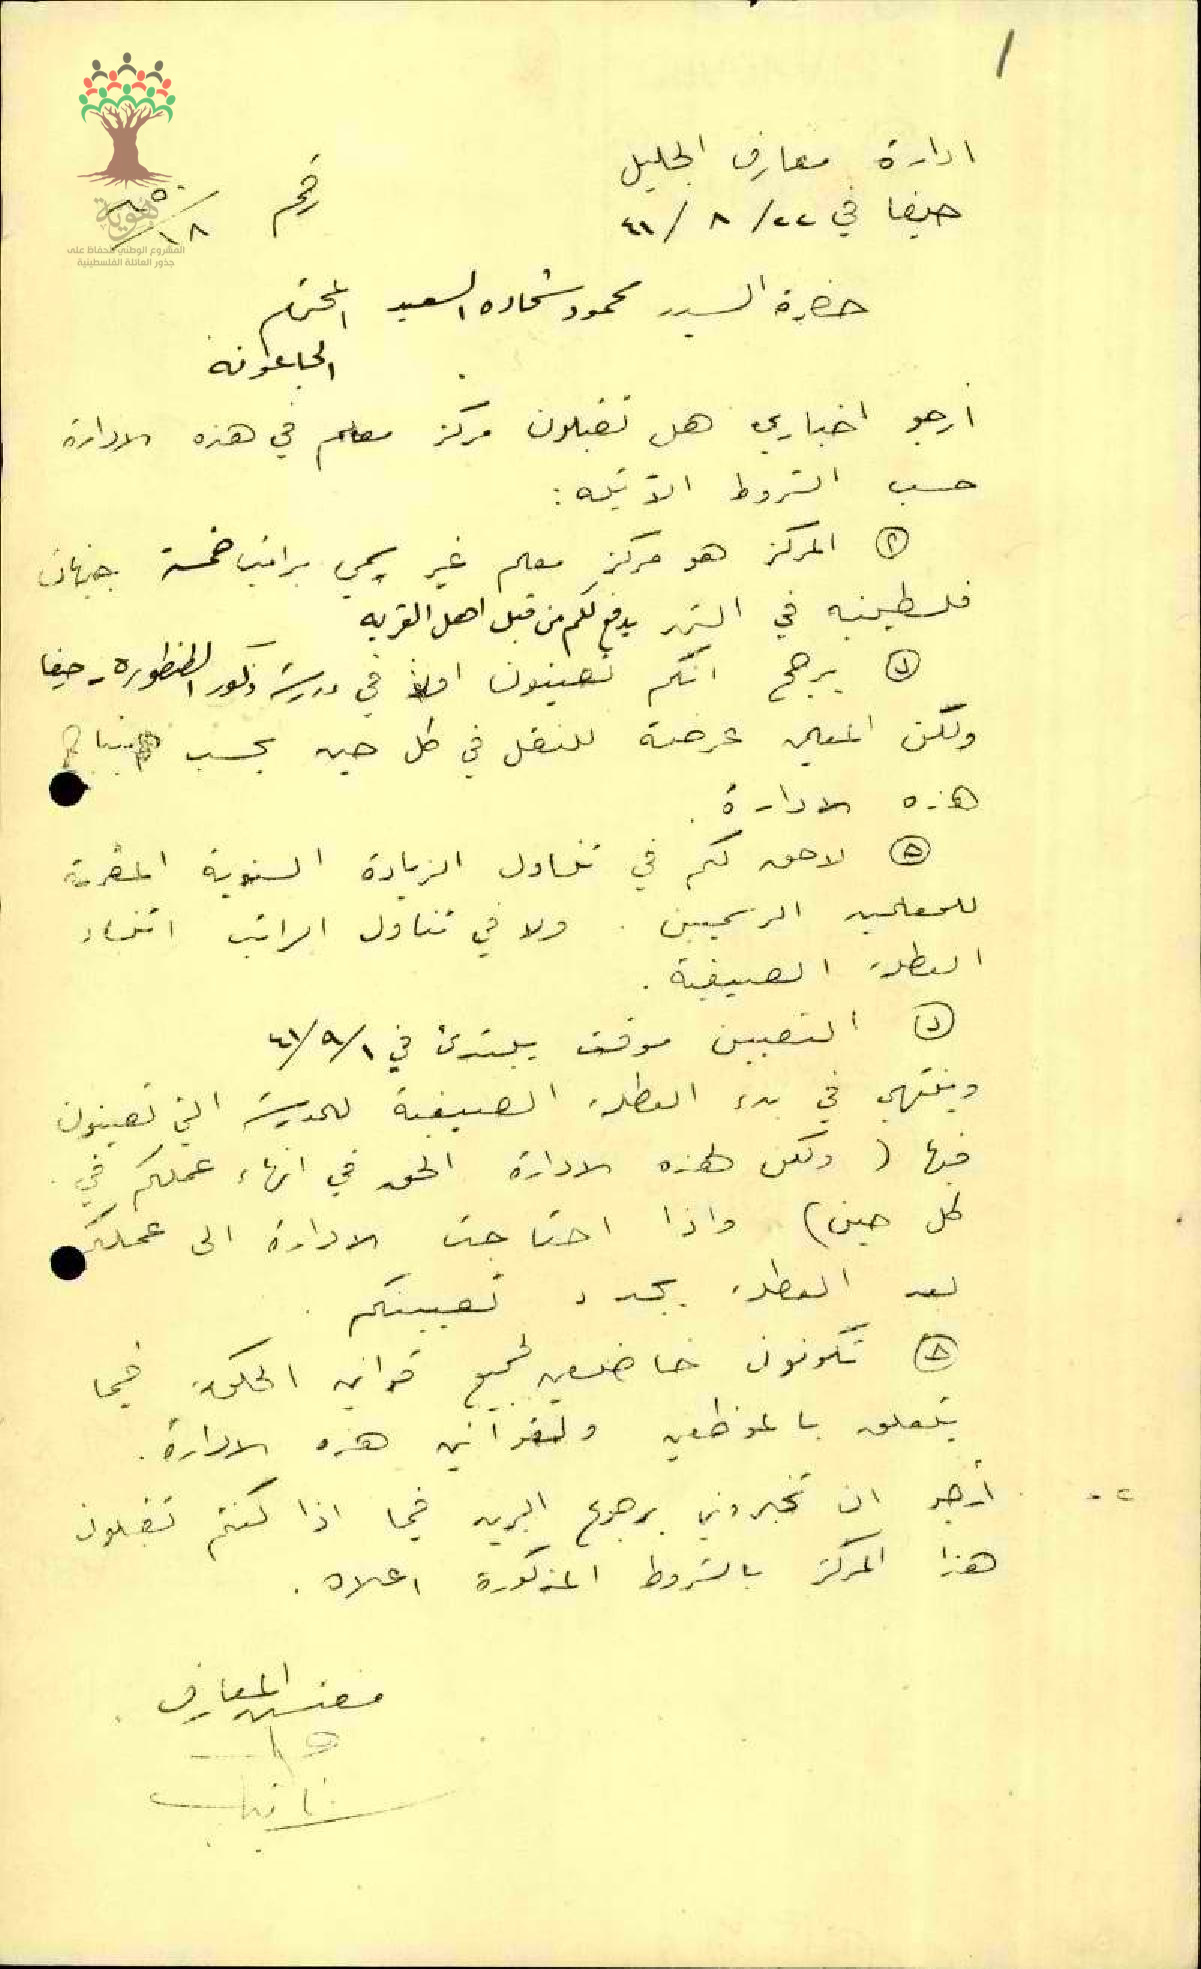 ١
ادارة معارف الجليل
حيفا في ٢٢/ ٨ / ٤١
رقم
هوية
المشروع الوطني للحفاظ على
جذور العائلة الفلسطينية
حضرة السيد محمود شحاده السعيد المحترم
الجاعونة
أرجو اخباري هل تقبلون مركز معلم في هذه الادارة
حسب الشروط الآتية :
المركز هو مركز معلم غير رسمي براتب خمسة جنيهات
فلسطينيه في الشهر يدفع لكم من قبل اهل القريه
يرجح انكم تعينون اولاً في مدرسة ذكور الطنطورة - حيفا
ولكن المعلمين عرضة للنقل في كل حين بحسب
هذه الادارة .
لا حق لكم في تناول الزيادة السنوية المقررة
للمعلمين الرسميين . ولا في تناول الراتب اثناء
العطلة الصيفية .
التعيين موقت يبتدئ في ١/ ٩/ ٤١
وينتهي في بدء العطلة الصيفية للمدرسة التي تعينون
فيها ( ولكن لهذه الادارة الحق في انهاء عملكم في
كل حين ) واذا احتاجت الادارة الى عملكم
بعد العطلة يجدد تعيينكم .
تكونون خاضعين لجميع قوانين الحكومة فيما
يتعلق بالموظفين ولقوانين هذه الادارة .
٢ - أرجو ان تخبروني برجوع البريد فيما اذا كنتم تقبلون
هذا المركز بالشروط المذكورة اعلاه .
مفتش المعارف